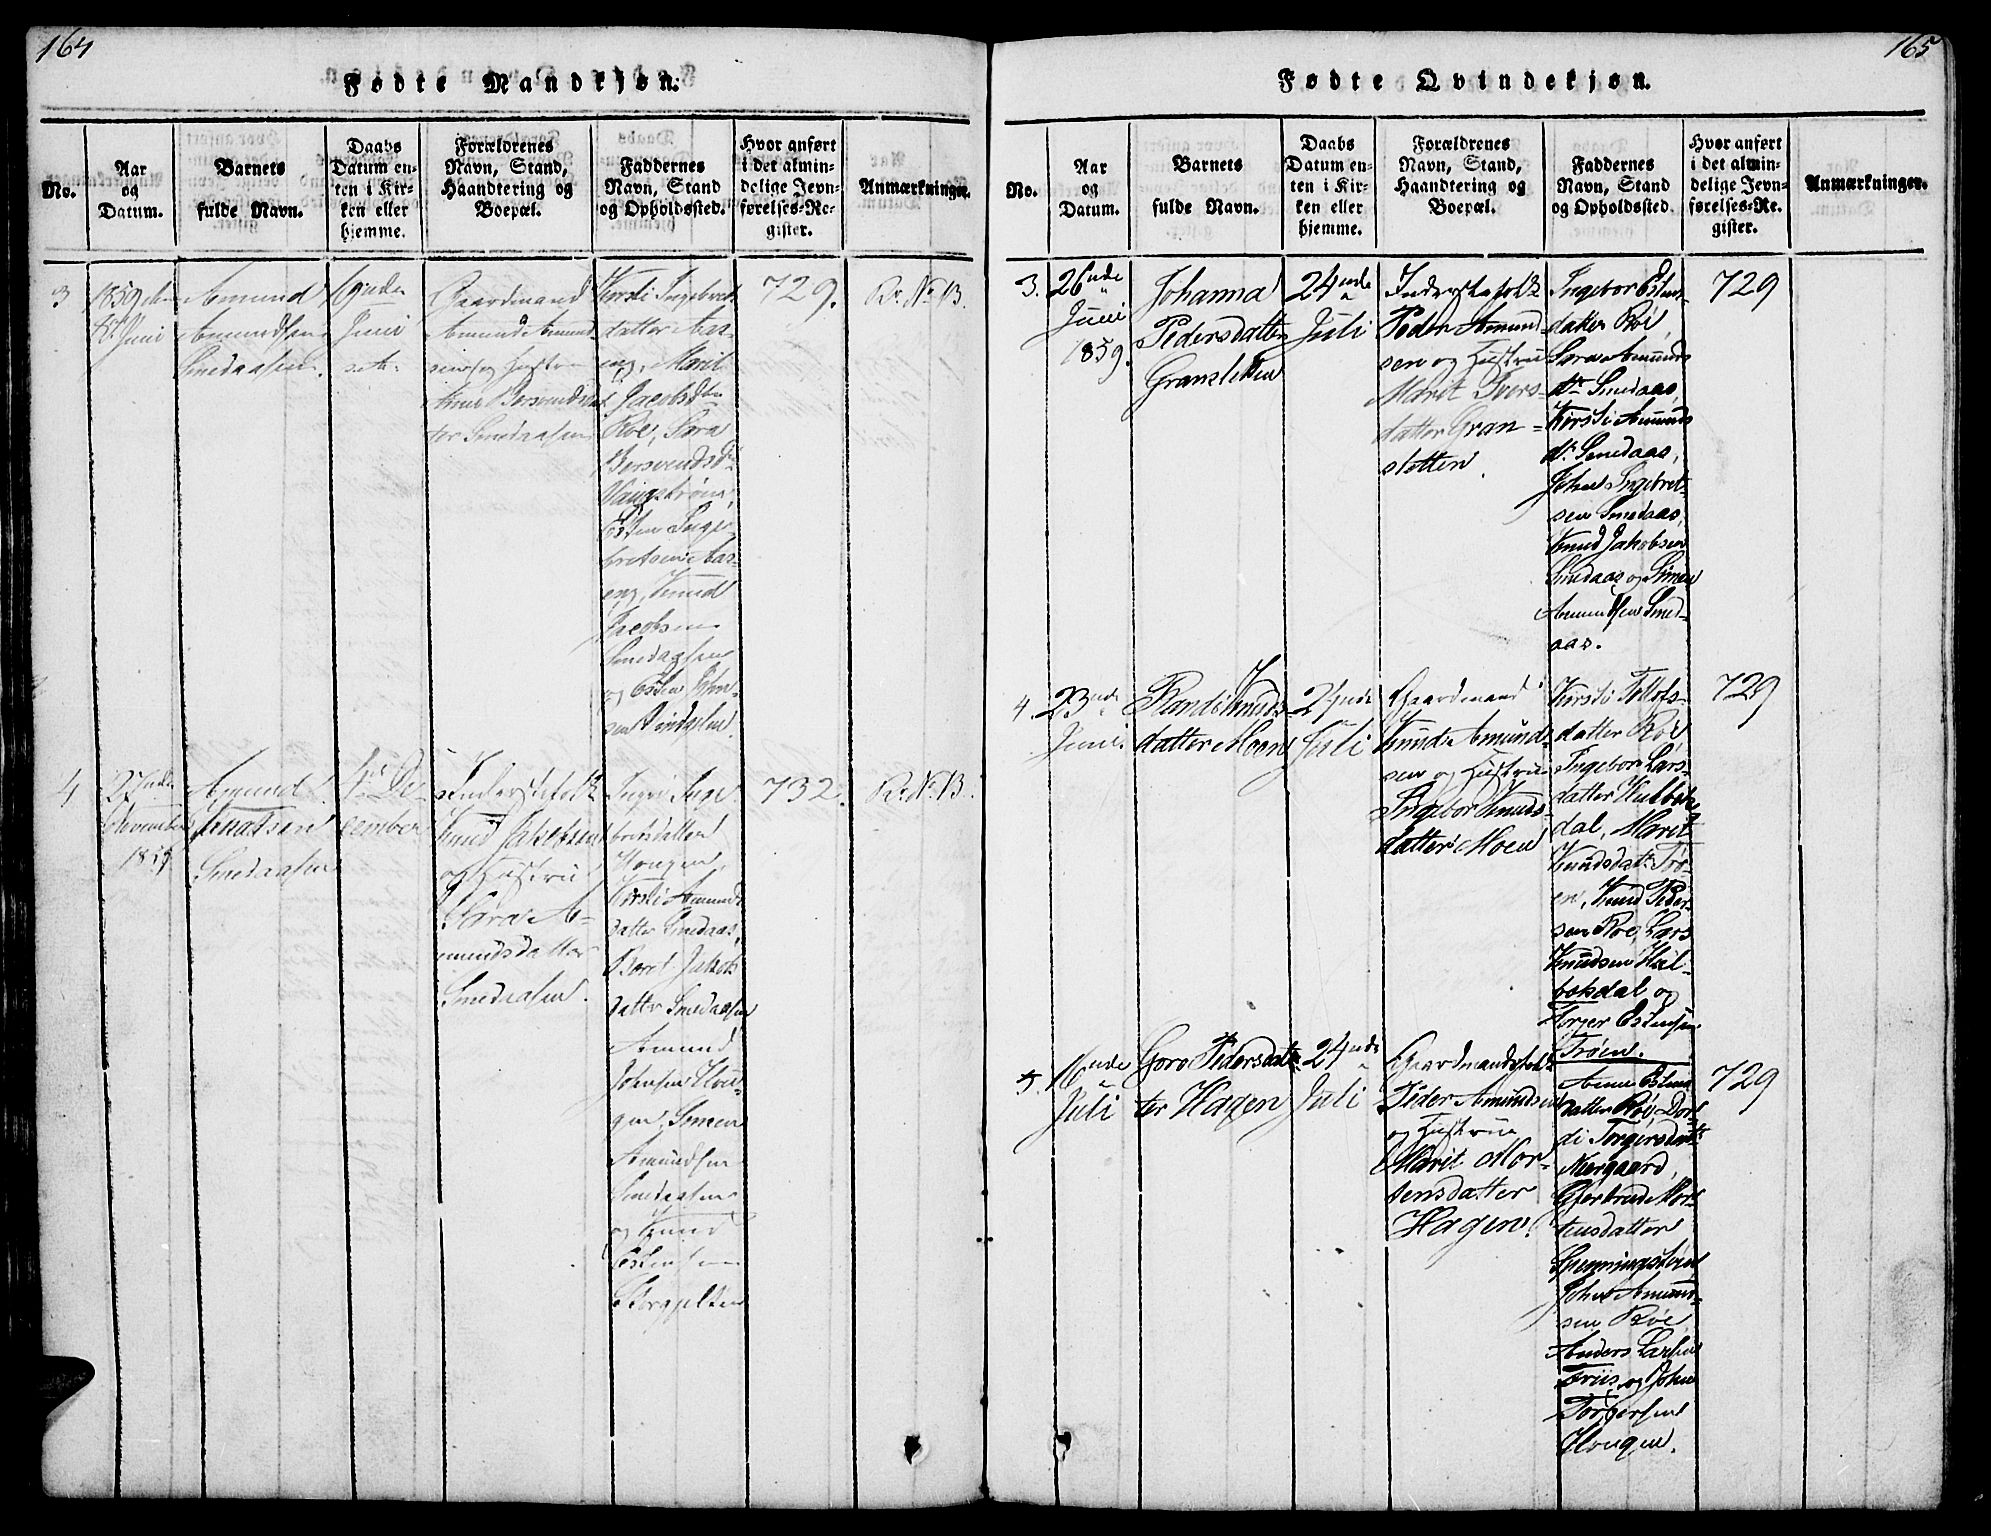 164
Fødte Mandkjøn.
No.
Aar
og
Datum.
Barnets
fulde Navn.
Daabs
Datum en-
ten i Kir-
ken eller
hjemme.
Forældrenes
Navn, Stand,
Haandtering og
Boepæl.
Faddernes
Navn, Stand
og Opholdssted.
Hvor anført
i det almin-
delige Jevn-
førelses-Re-
gister.
Anmærkninger.
3
1859 den
Juni
Amund
Amundsen
Smedaasen.
19de
Juni
Gaardmand
Amund Amund-
sen og Hustru
Anne Bersvendsdat-
ter Smedaasen
Kirsti Ingebret-
datter Aas-
eng, Marit
Jacobsdtr
Roe, Sara
Bersvendsdr
Vangstrøm,
Esten Inge-
bretsen Aas-
eng, Knud
Jacobsen
Smedaasen
og Esten
729.
No. 13
4
27de
November
1859
Amund
Knutsen
Smedaasen
De-
cember
Inderstefolk
Knud Jakobsen
og Hustru
Sara A-
mundsdatter
Smedaasen.
Ingri Inge-
datter
Hougen,
Kirsti Amunds-
datter Smedaas,
Beret Jakobs-
datter Smedaasen
Amund
Johnsen Hou-
gen, Simen
Amundsen
Smedaasen
og Knud
Estensen
732.
No. 13.
165
Fødte Qvindekjøn.
No.
Aar
og
Datum.
Barnets
fulde Navn.
Daabs
Datum en-
ten i Kir-
ken eller
hjemme.
Forældrenes
Navn, Stand,
Haandtering og
Boepæl.
Faddernes
Navn, Stand
og Opholdssted.
Hvor anført
i det almin-
delige Jevn-
førelses-Re-
gister.
Anmærkninger.
3.
26nde
Juni
1859.
Johanna
Pedersdatter
Gransletten
24nde
Juli
Inderstefolk
Peder Amund-
sen og Hustru
Marit Ivers-
datter Gran-
sletten.
Ingebor Estens-
datter Roe,
Sara Amunds
dr. Smedaas,
Kirsti Amunds
dr. Smedaas,
John Ingebret-
sen Smedaas,
Knud Jakobsen
Smedaas og Simen
Amundsen Smed-
aas.
729
4.
23nde
Juni.
Randi Knuds-
datter Moen
24nde
Juli
Gaardmand
Knud Amund-
sen og Hustru
Ingebor Knuds-
datter Moen
Kirsti Tollefs-
datter Roe
Ingebor Lars-
datter Hulbæk-
dal, Marit
Knudsdatr Trø-
en, Knud Peder-
sen Roe, Lars
Knudsen Hul-
bækdal og
Torger Estensen
Trøen.
729
5.
16nde
Juli
Goro Pedersdat-
ter Hagen
24nde
Juli
Gaardmandsfolk
Peder Amundsen
og Hustrue
Marit Mor-
tensdatter
Hagen.
Anne Estens-
datter Roe, Dor-
di Torgersdatr
Nærgaard,
Gjertrud Mor-
tensdatter
John Amund-
sen Roe
Anders Larsen
Friis, og John
Torgersen
Hougen.
729